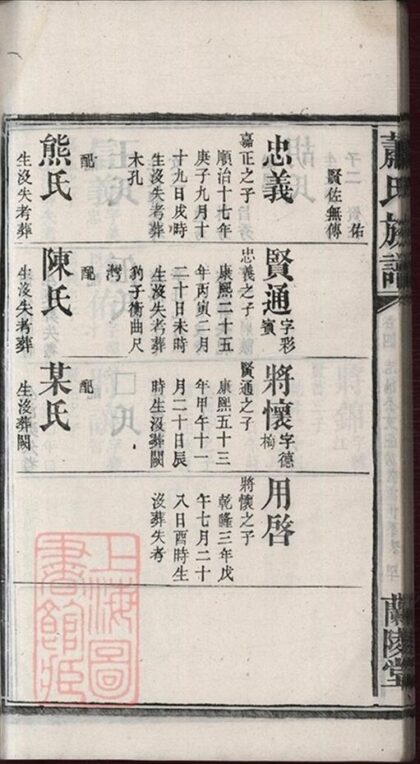 蕭氏族譜
蘭陵堂
子二 賢佑
賢佐無傳
忠義
嘉正之子
順治十七年
庚子九月十
十九日戌時
生沒失考葬
木孔
配
熊氏
生沒失考葬
賢通 字彩賓
忠義之子
康熙二十五
年丙寅二月
二十日未時
生沒失考葬
豹子衝曲尺
灣
配
陳氏
生沒失考葬
將懷 字德
賢通之子
康熙五十三
年甲午十一
月二十日辰
時生沒葬闕
配
某氏
生沒葬闕
用啓
將懷之子
乾隆三年戊
午七月二十
八日酉時生
沒葬失考
上海圖
書館藏